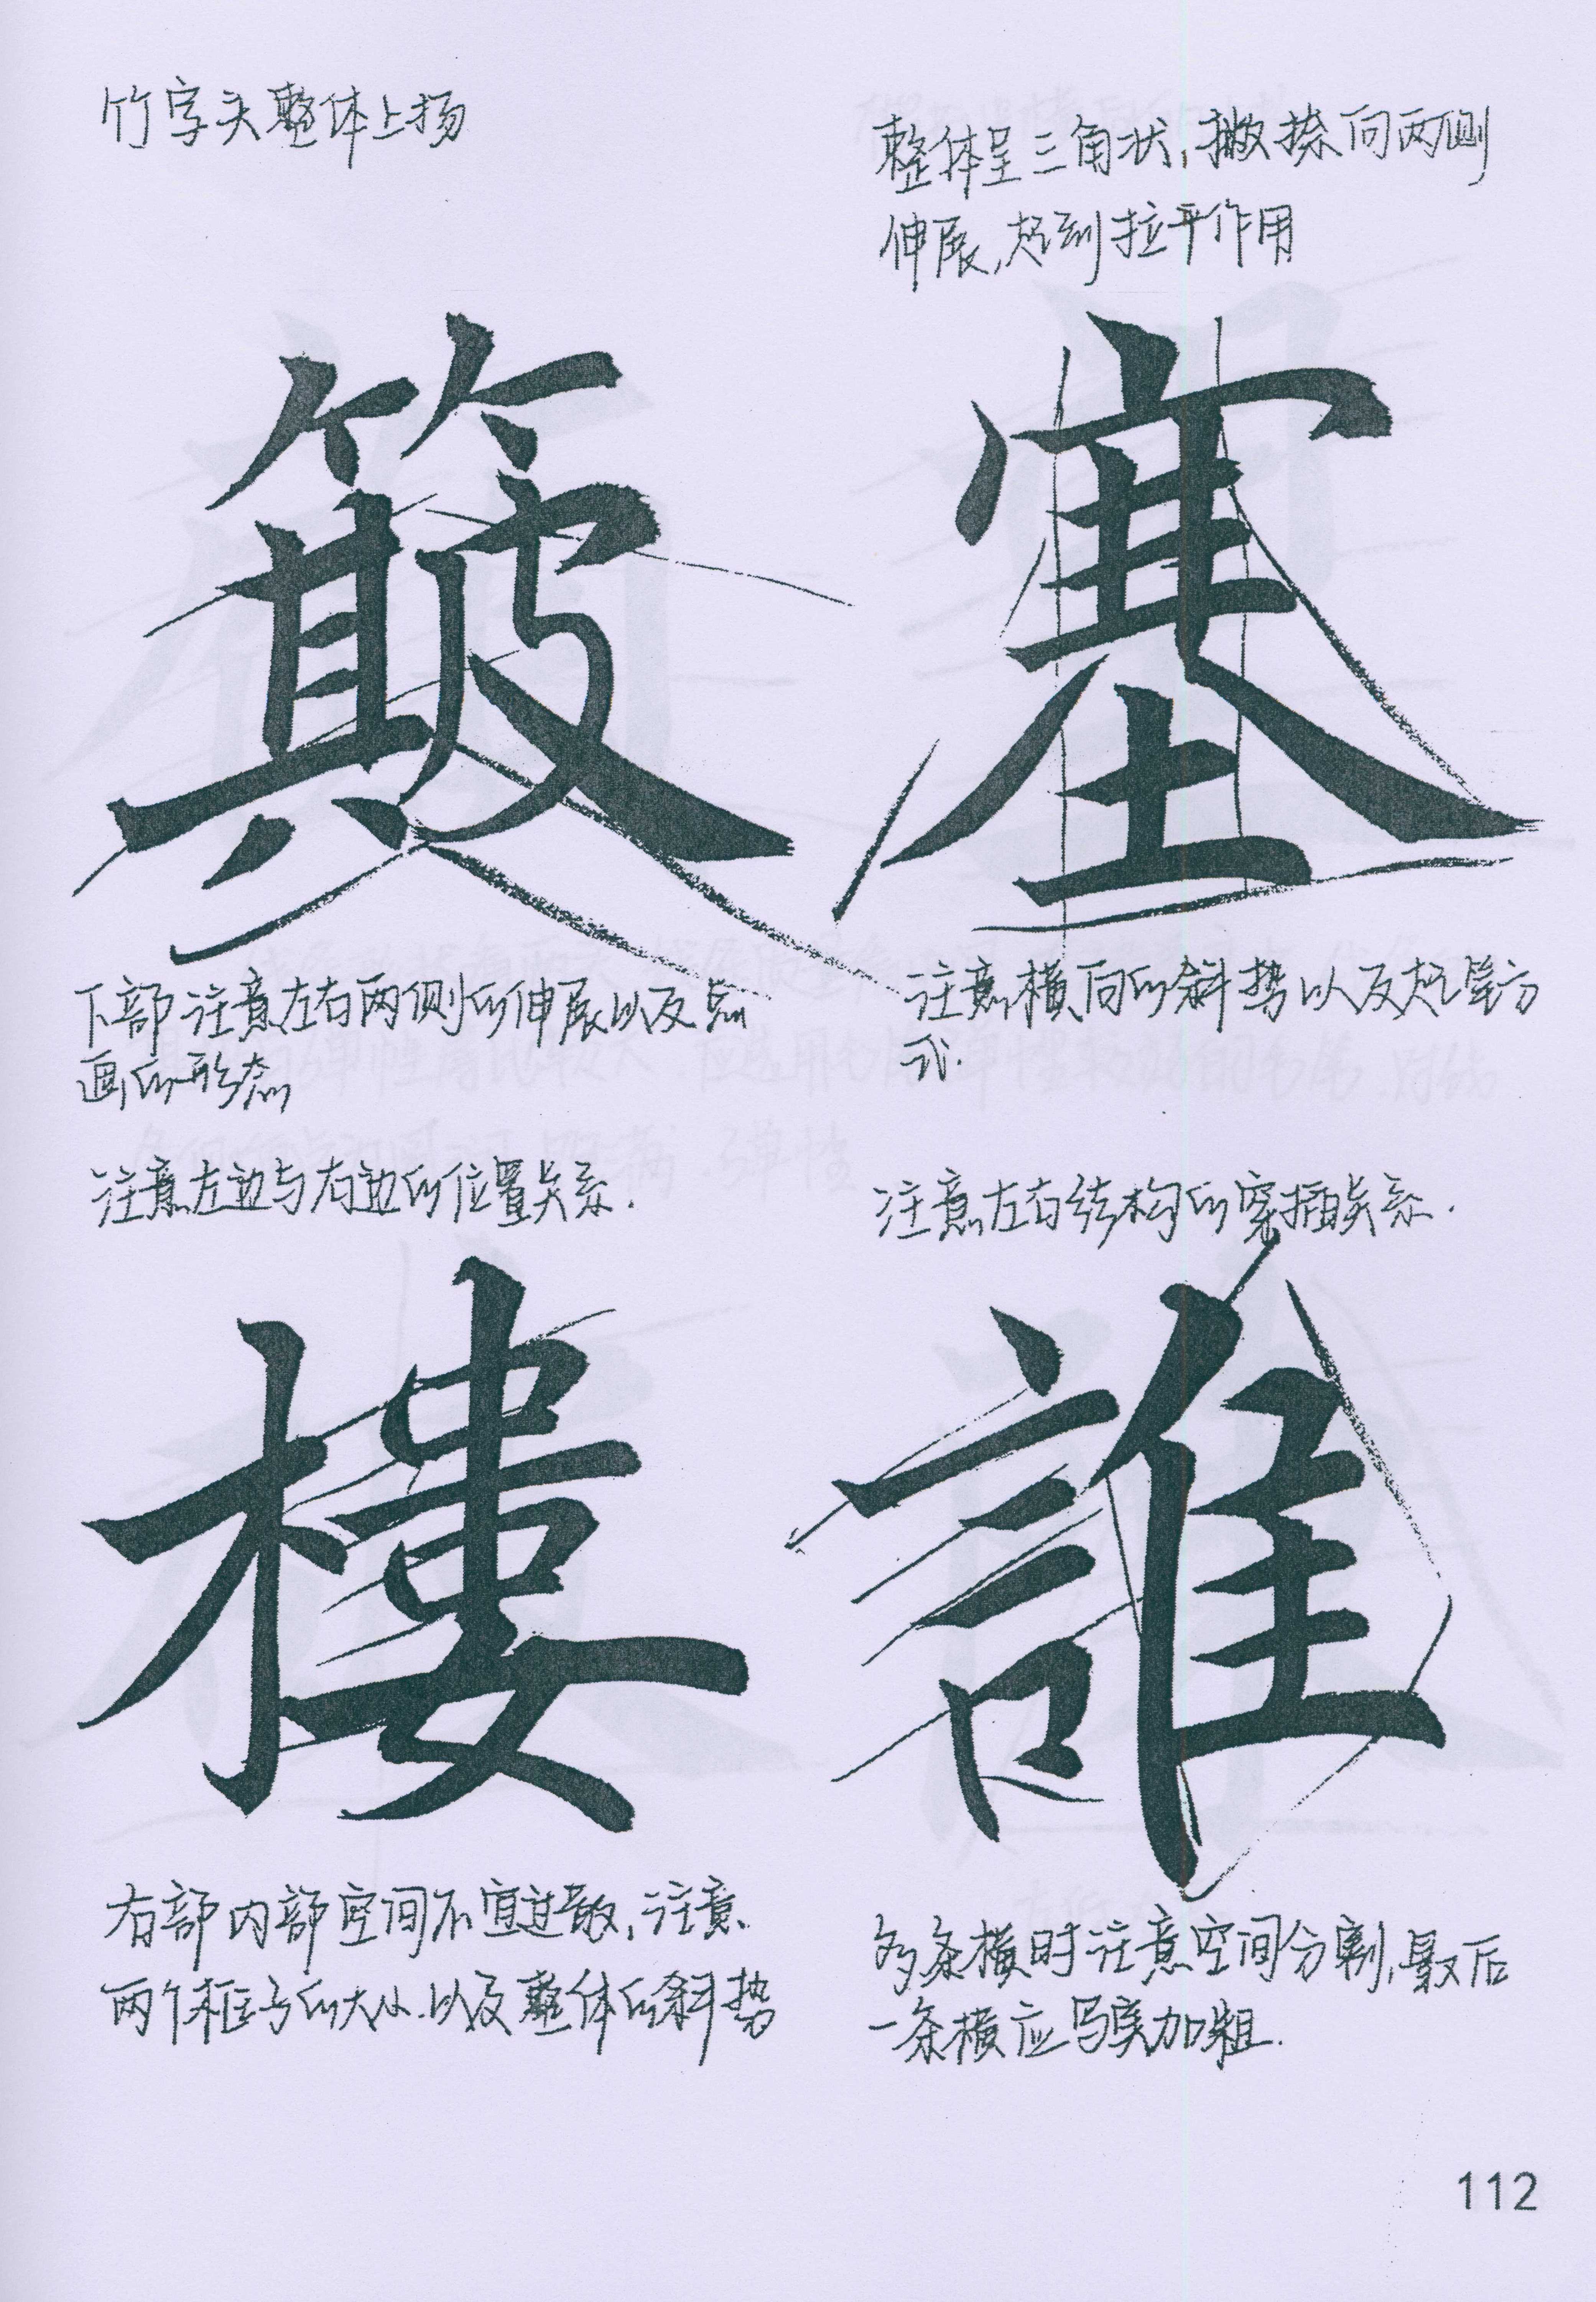 竹字头整体上扬
整体呈三角状,撇捺向两侧
伸展,起到拉平作用
簸
塞
下部注意左右两侧的伸展以及点
画的形态
注意横向的斜势以及起笔方
式.
注意左边与右边的位置关系.
注意左右结构的穿插关系.
樓
誰
右部内部空间不宜过散,注意
两个框子的大小.以及整体的斜势
多条横时注意空间分割,最后
一条横应写实加粗.
112